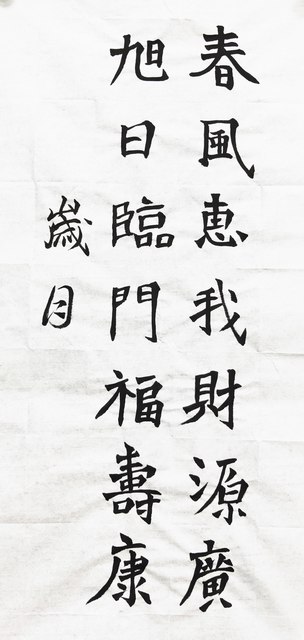 春風恵我財源廣
旭日臨門福壽康
歲月